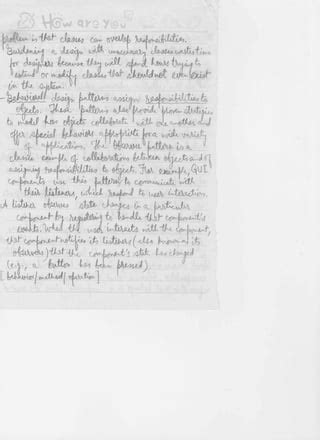 How are you?
problem is that classes can overlap responsibilities.
Burdening a design with unnecessary classes wastes time
for designers because they will spend hours trying to
extend or modify classes that should not even exist
in the system.
- Behavioral design patterns assign responsibilities to
objects. These patterns also provide proven strategies
to model how objects collaborate with one another and
offer special behaviors appropriate for a wide variety
of applications. The Observer pattern is a
classic example of collaborations between objects and of
assigning responsibilities to objects. For example, GUI
components use this pattern to communicate with
their listeners, which respond to user interactions.
A listener observes state changes in a particular
component by registering to handle that component's
events. When the user interacts with the component,
that component notifies its listeners (also known as its
observers) that the component's state has changed
(e.g., a button has been pressed).
[behavior/method/operation]